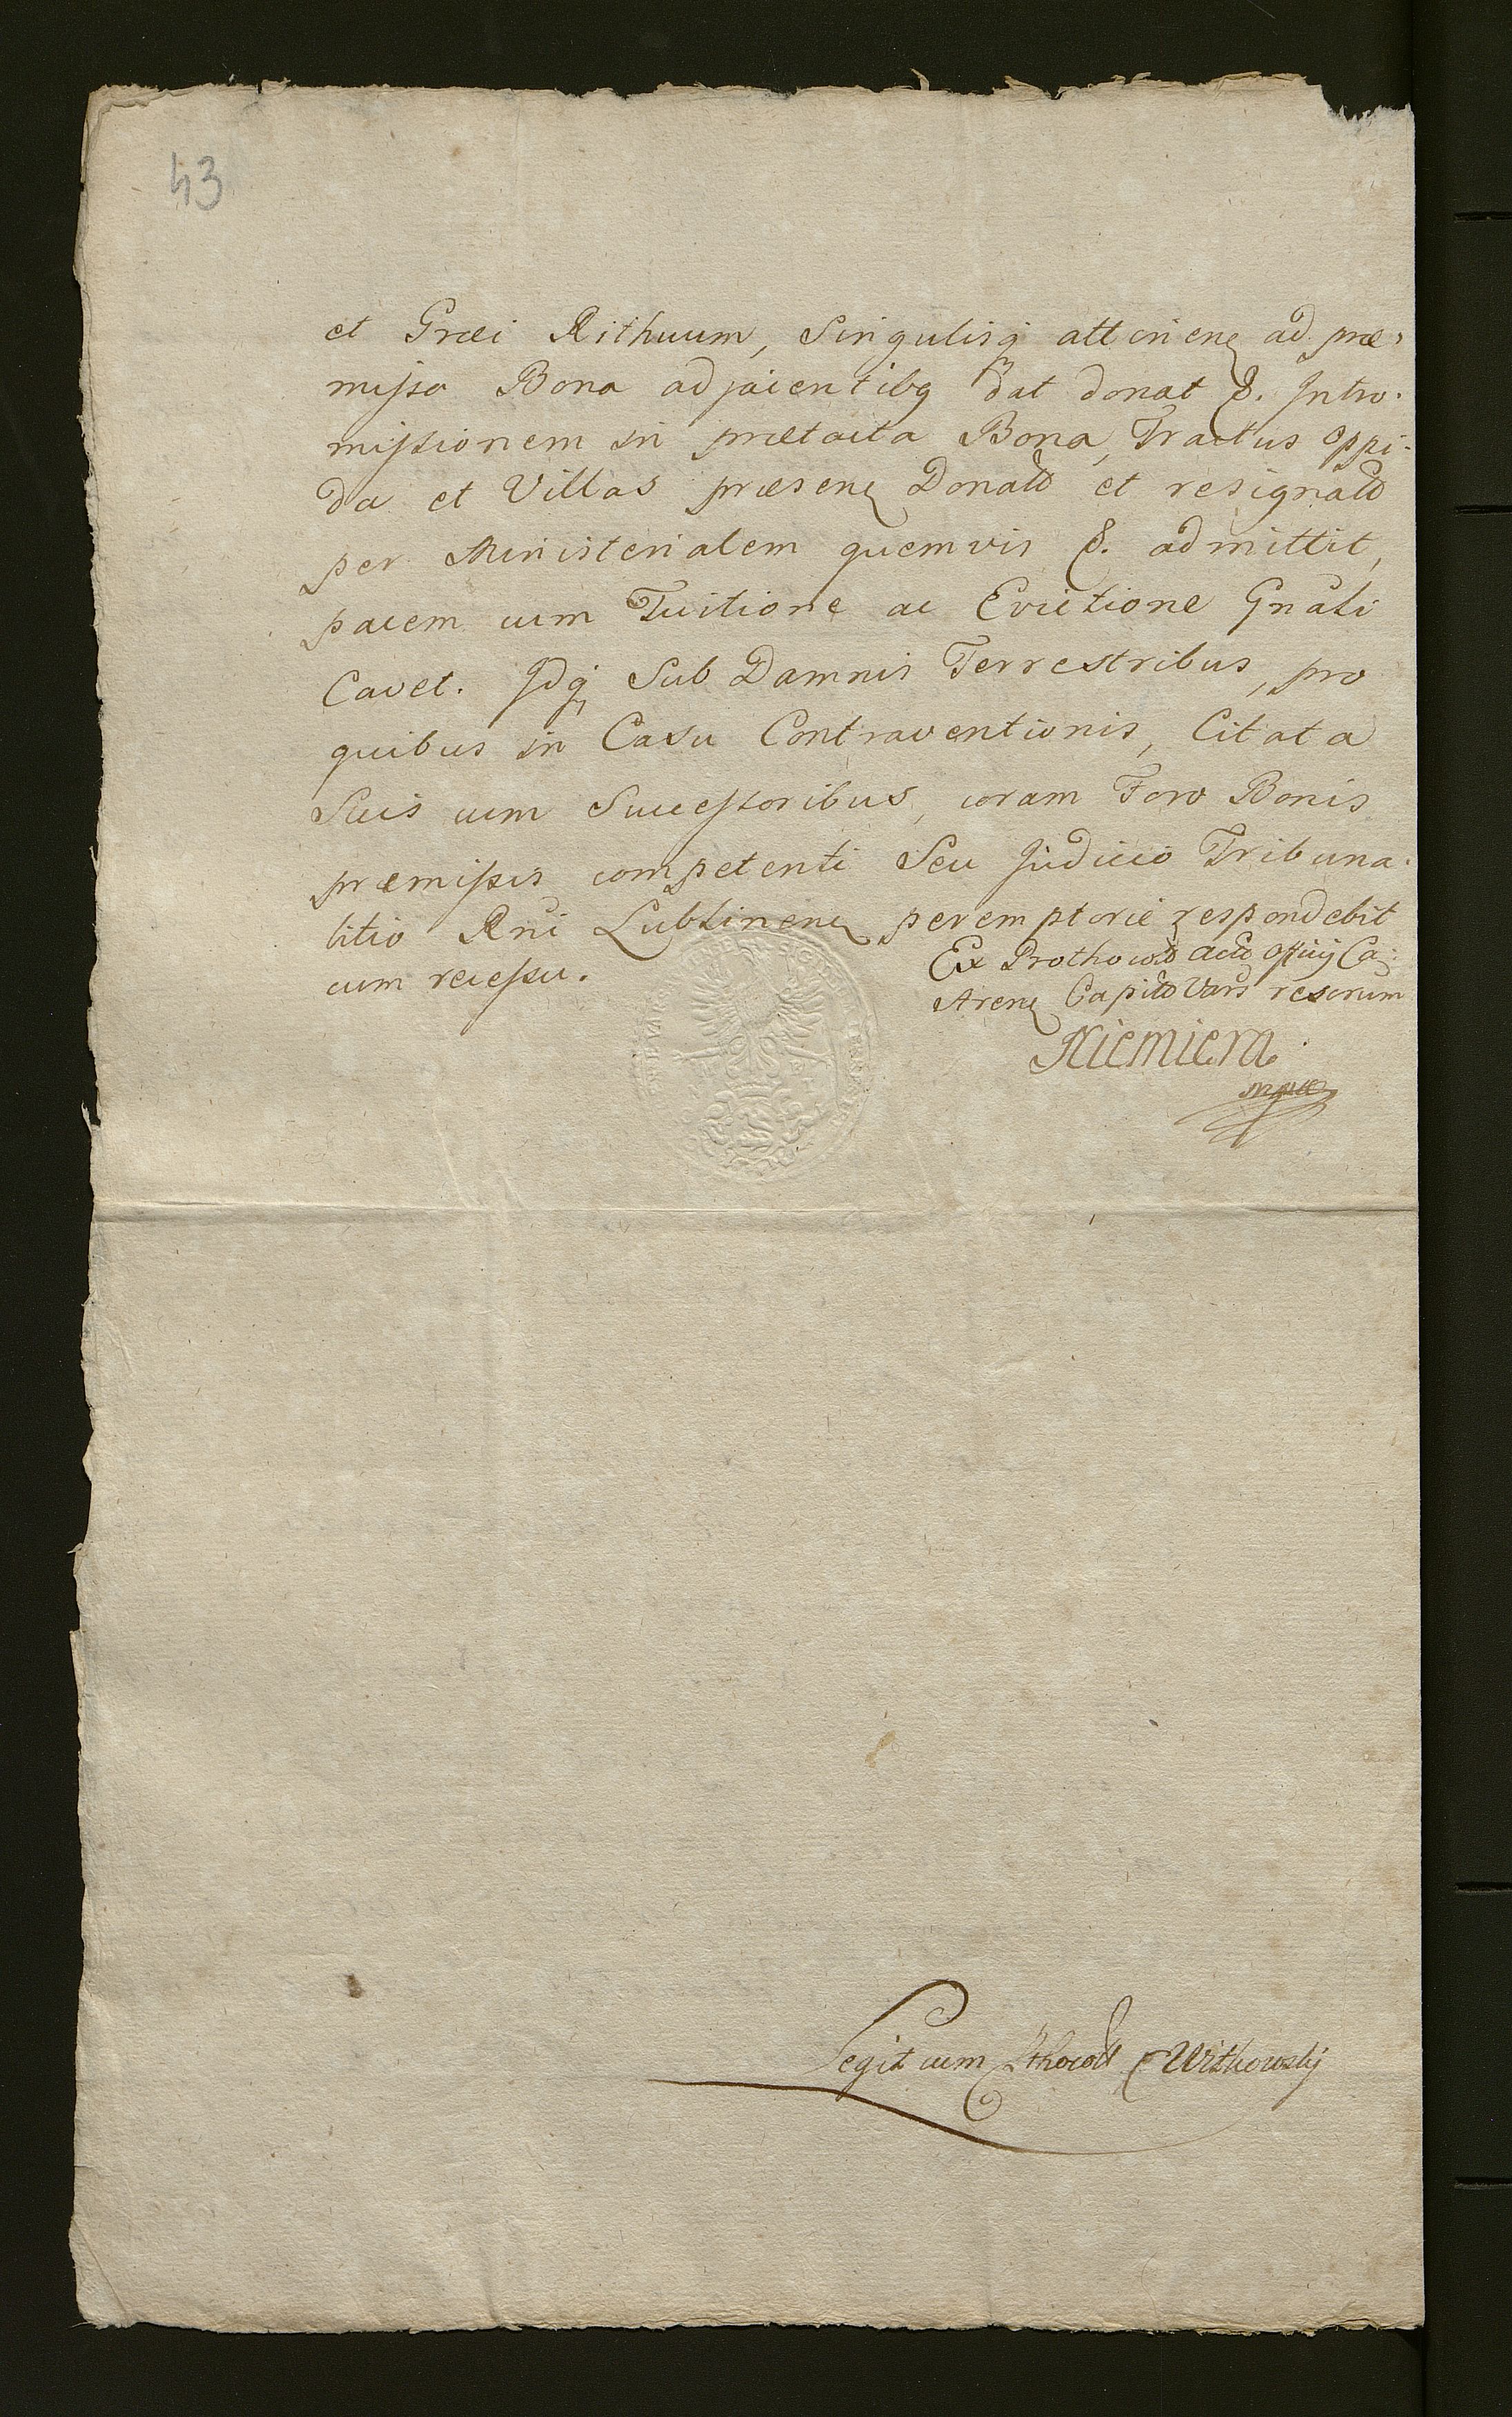 43
et Græci Rithuum, Singulisq attinenẹ ad præ-
missa Bona adjacentibq dat donat &. Intro-
missionem in prætacta Bona, Tractus Oppi-
da et Villas præsenẹ Donatõ et resignatõ
per Ministerialem quemvis &. admittit,
pacem cum Tuitione ac Evictione Gnãli
Cavet. Idq Sub Damnis Terrestribus, pro
quibus in Casu Contraventionis, Citata
Suis cum Successoribus, coram Foro Bonis
præmissis competenti Seu Judicio Tribuna-
litio Rni Lublinenẹ peremptorie respondebit
cum recessu.
Ex Prothocolõ Actõ Officij Ca-
strenẹ Capitlõ Vars rescrum
Niemiera
mpria
Legit cum Pthocollõ Witkowskij